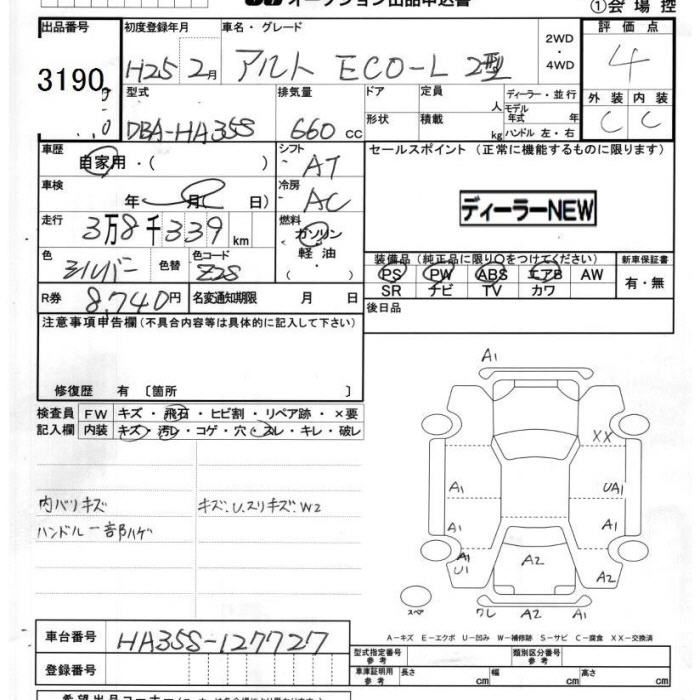 オークション出品申込書
①会場控
出品番号
3190
初度登録年月
H25 2月
車名・グレード
アルト ECO-L 2型
2WD
・
4WD
評価点
4
外装 内装
C C
型式
DBA-HA35S
排気量
660 cc
ドア
形状
定員 人
積載 kg
ディーラー・並行
モデル
年式 年
ハンドル 左・右
車歴
自家用・( )
シフト
AT
車検
年 月 日)
冷房
AC
走行
3万8千339km
燃料
ガソリン
軽油
( ・ )
色
シルバー
色替
色コード
Z2S
R券 8,740円
名変通知期限 月 日
セールスポイント (正常に機能するものに限ります)
ディーラーNEW
装備品 (純正品に限り○をつけてください)
PS PW ABS エアB AW
SR ナビ TV カワ
新車保証書
有・無
後日品
注意事項申告欄(不具合内容等は具体的に記入して下さい)
修復歴 有 〔箇所 〕
検査員
記入欄
FW キズ・飛石・ヒビ割・リペア跡・×要
内装 キズ・汚レ・コゲ・穴・スレ・キレ・破レ
内バリキズ
キズ、U、スリキズ、W2
ハンドル一部ハゲ
A1
XX
A1 UA1
A1 A1
A1
U1
A2 A2
スペア
ワレ A2 A1
A-キズ E-エクボ U-凹み W-補修跡 S-サビ C-腐食 XX-交換済
車台番号 HA35S-127727
登録番号
型式指定番号
参考
類別区分番号
参考
車庫証明用
参考
長さ cm 幅 cm 高さ cm
希望出品コーナー